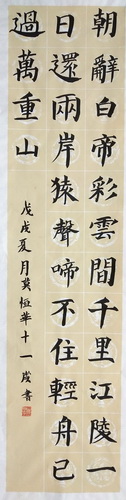 朝辭白帝彩雲間千里江陵一
日還兩岸猿聲啼不住輕舟已
過萬重山
戊戌夏月莫恒華十一歲書